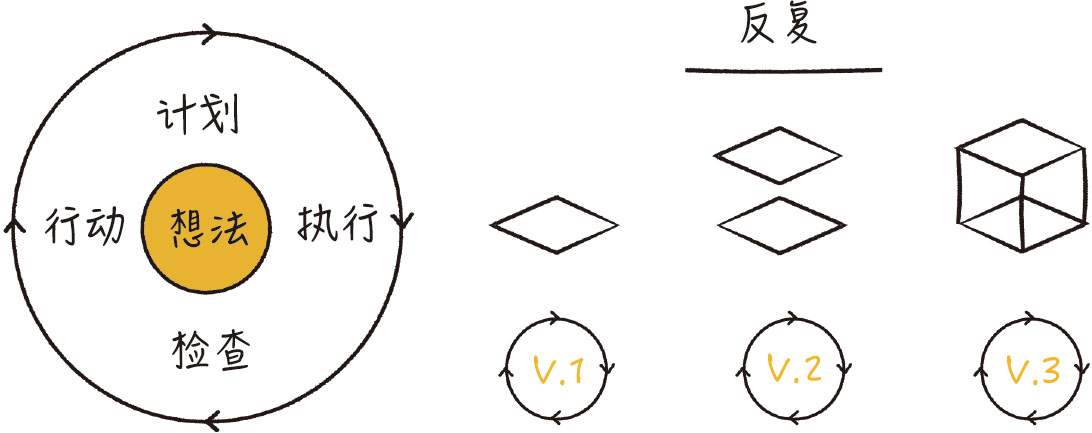 计划
行动
想法
执行
检查
反复
V.1
V.2
V.3